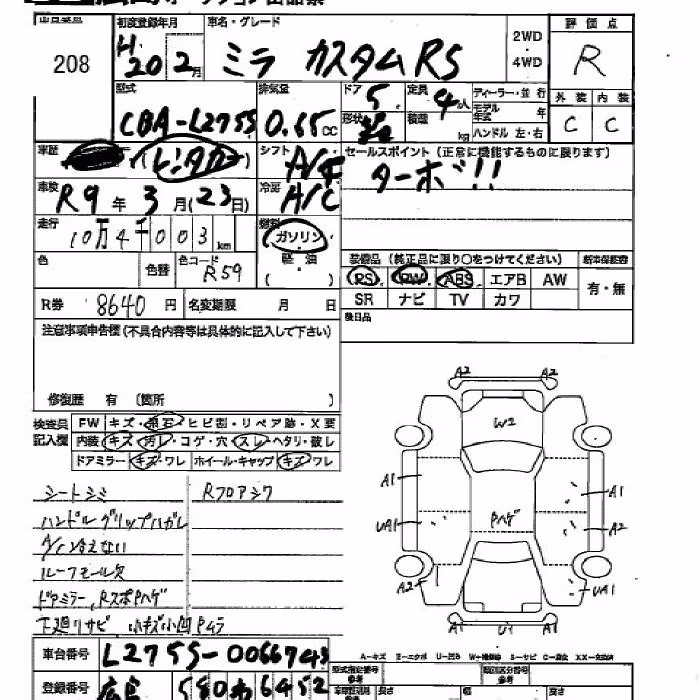 オークション出品票
208
初度登録年月 車名・グレード 2WD 評価点
H20 2月 ミラ カスタムRS ・4WD R
型式 排気量 ドア 5 定員 4人 ディーラー・並行 外装 内装
CBA-L275S 0.65cc 形状 積載 kg モデル年式 年 C C
ハンドル 左・右
車歴 (レンタカー) シフト A/T セールスポイント(正常に機能するものに限ります)
ターボ!!
車検 R9年3月(23日) 冷房 A/C
走行 10万4千003km 燃料 ガソリン
軽油
( )
装備品(純正品に限り○をつけてください) 新車保証書
色 色替 色コード R59
RS PW ABS エアB AW 有・無
SR ナビ TV カワ
R券 8640円 名変期限 月 日
後日品
注意事項申告欄(不具合内容等は具体的に記入して下さい)
修復歴 有 〔箇所 〕
検査員記入欄 FW キズ・飛石・ヒビ割・リペア跡・X要
内装 キズ・汚レ・コゲ・穴・スレ・ヘタリ・破レ
ドアミラー キズ・ワレ ホイール・キャップ キズ・ワレ
シートシミ Rフロアシワ
ハンドルグリップハガレ
A/C冷えない
ルーフモール欠
ドアミラー、RスポPハゲ
下廻りサビ 小キズ小凹 Pムラ
A2 A2
W2
A1 A1
UA1 Pハゲ A2
A2 UA1
A1 U1 A1
車台番号 L275S-0066743
A-キズ E-エクボ U-凹み W-補修跡 S-サビ C-腐食 XX-交換済
型式指定番号 類別区分番号
登録番号 広島 580 わ 6452
長さ 幅 高さ